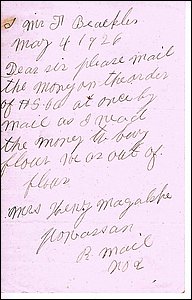 Mr A Beackler
May 4 1926
Dear sir please mail
the money on the order
of H S 60 at once by
mail as I need
the money to buy
flour we as out of
flour
Mrs Henry Magalske
Powassan
R. mail
No 2